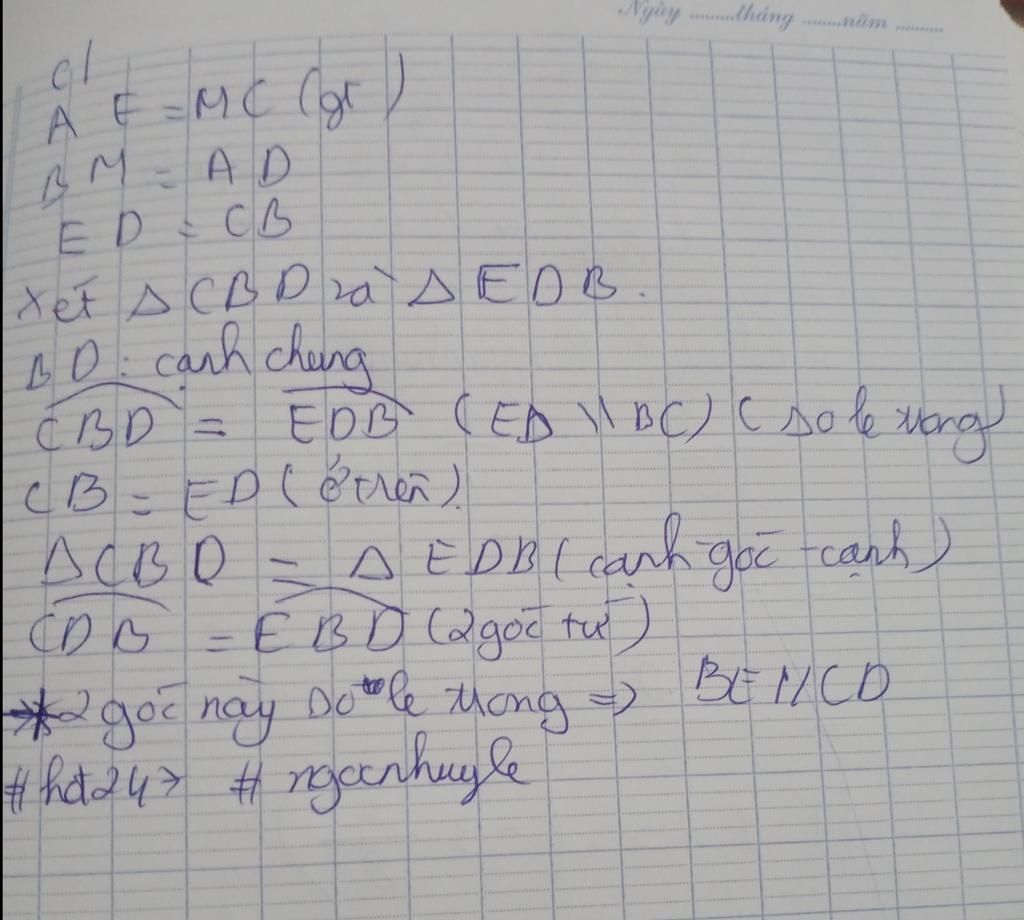 Ngày ........tháng ........năm ..........
c/
AE = MC (gt)
BM = AD
ED = CB
Xét Δ CBD và Δ EDB.
BD : cạnh chung
CBD = EDB (ED \\ BC) (so le trong)
CB = ED (ở trên)
ΔCBD = Δ EDB (cạnh-góc-cạnh)
CDB = EBD (2 góc tứ)
2 góc này so le trong => BE // CD
#hđ247 #ngocnhuyle